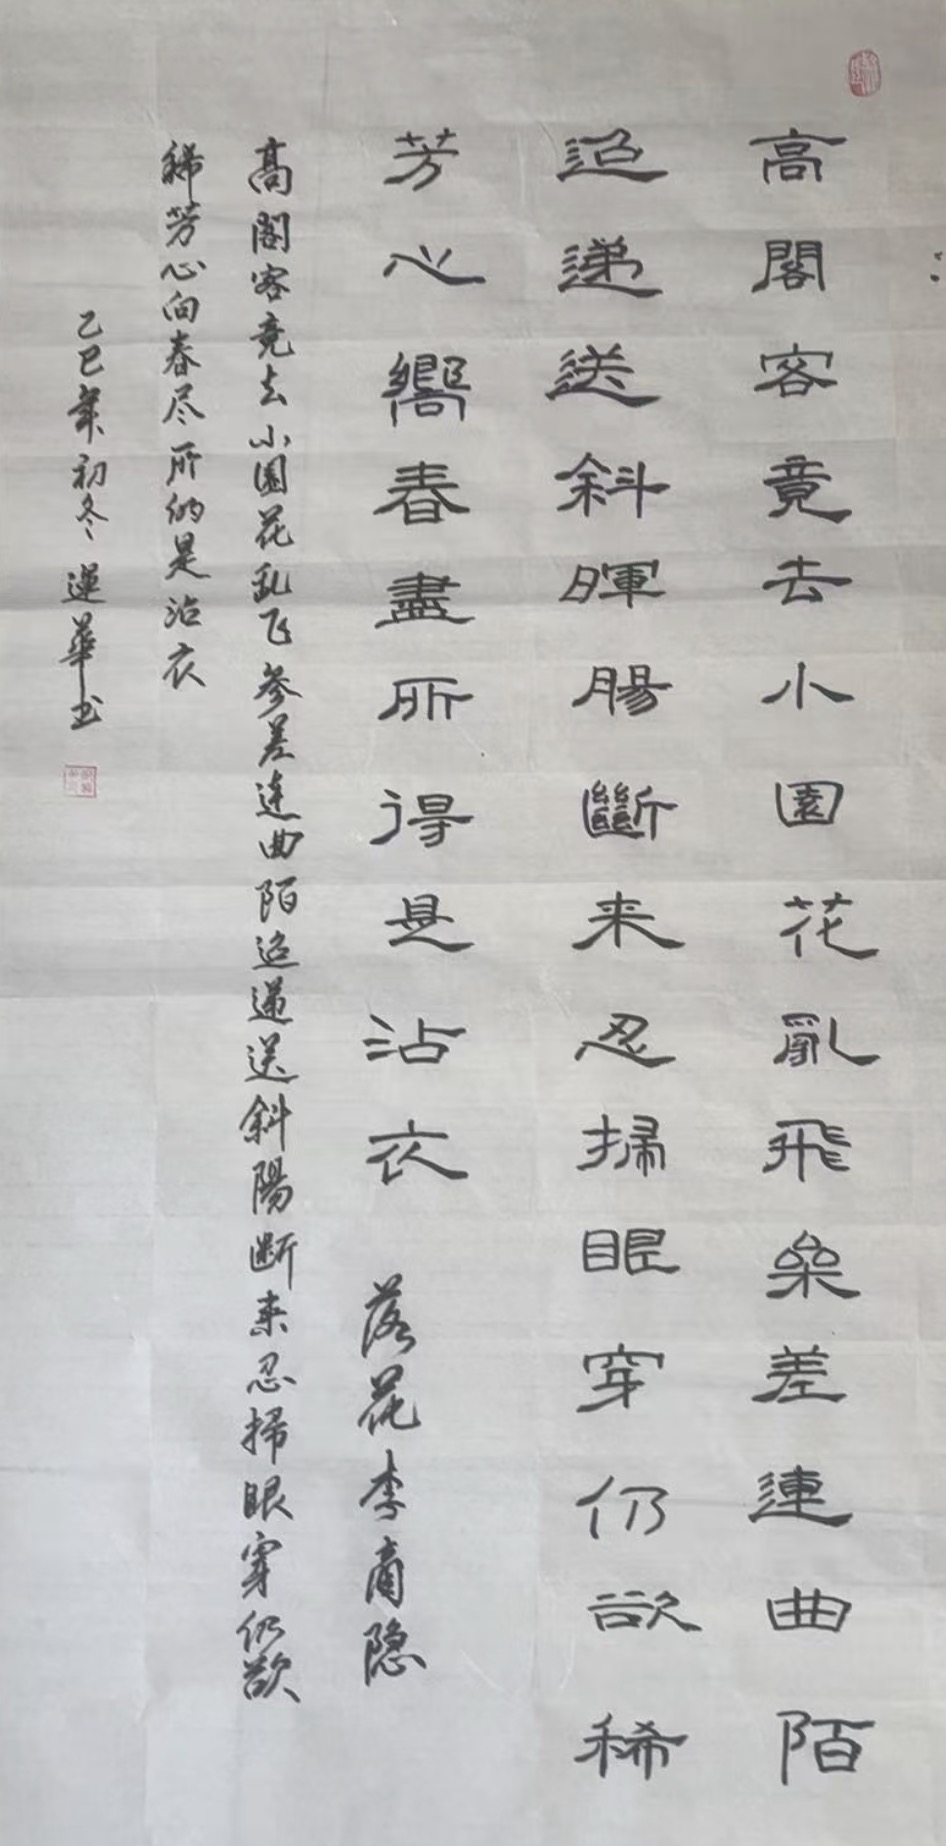 高閣客竟去小園花亂飛叅差連曲陌
迢递送斜暉腸斷来忍掃眼穿仍欲稀
芳心嚮春盡所得是沾衣
落花李商隐
高閣客竟去小園花乱飞参差连曲陌迢递送斜陽断来忍掃眼穿仍欲
稀芳心向春尽所的是沾衣
乙巳年初冬莲華书